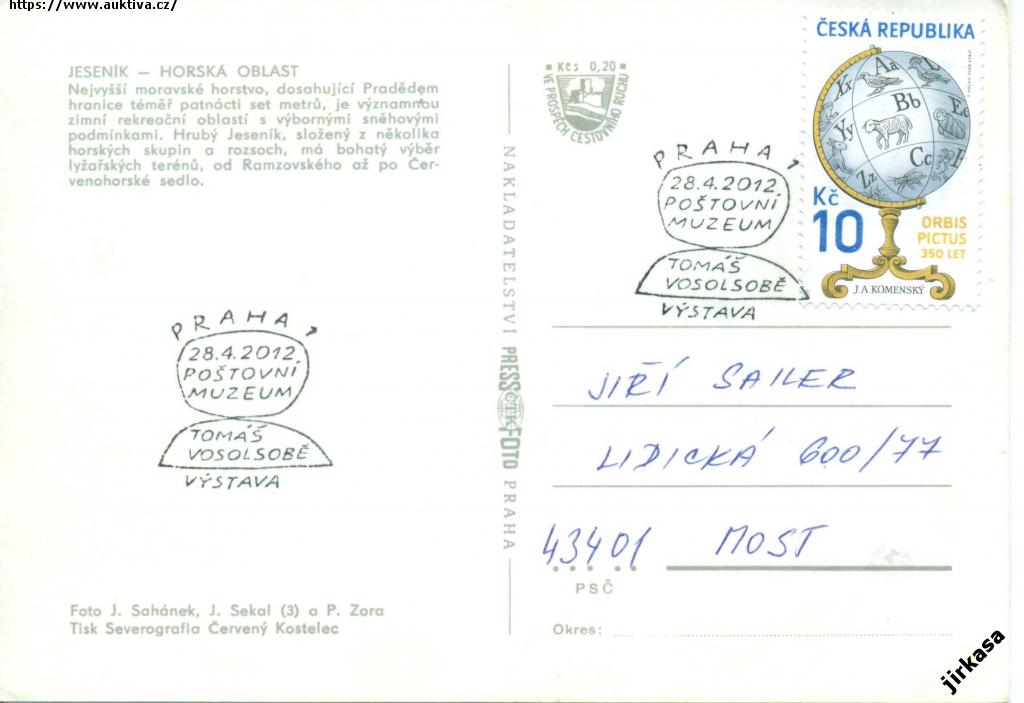 https://www.auktiva.cz/
JESENÍK – HORSKÁ OBLAST
Nejvyšší moravské horstvo, dosahující Pradědem
hranice téměř patnácti set metrů, je významnou
zimní rekreační oblastí s výbornými sněhovými
podmínkami. Hrubý Jeseník, složený z několika
horských skupin a rozsoch, má bohatý výběr
lyžařských terénů, od Ramzovského až po Čer-
venohorské sedlo.
PRAHA 1
28.4.2012
POŠTOVNÍ
MUZEUM
TOMÁŠ
VOSOLSOBĚ
VÝSTAVA
Foto J. Sahánek, J. Sekal (3) a P. Zora
Tisk Severografia Červený Kostelec
NAKLADATELSTVÍ PRESSFOTO PRAHA
ČTK
Kčs 0,20
VE PROSPĚCH CESTOVNÍHO RUCHU
PRAHA 1
28.4.2012
POŠTOVNÍ
MUZEUM
TOMÁŠ
VOSOLSOBĚ
VÝSTAVA
ČESKÁ REPUBLIKA
Xx Aa D
Yy Bb Ee
Zz Cc F
Kč
10
ORBIS
PICTUS
350 LET
J. A. KOMENSKÝ
JIŘÍ SAILER
LIDICKÁ 600/77
43401 MOST
PSČ
Okres:
jirkasa